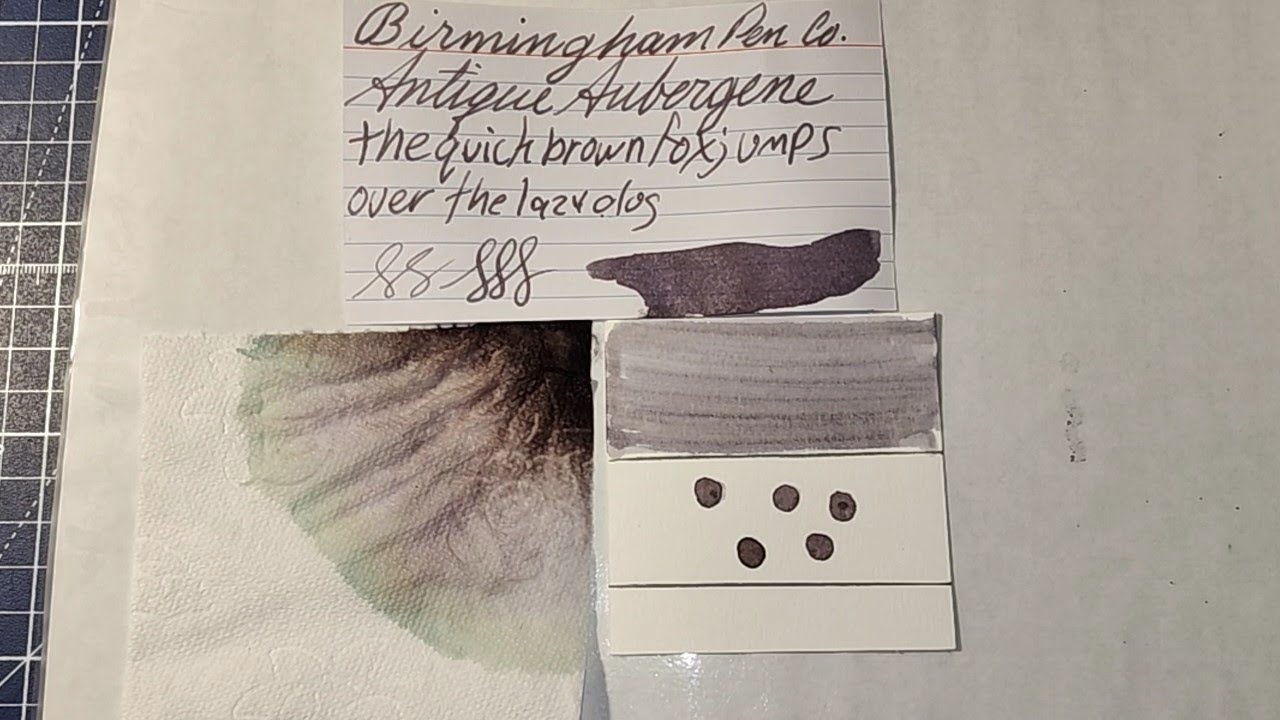 Birmingham Pen Co.
Antique Aubergene
the quick brown fox jumps
over the lazy dog